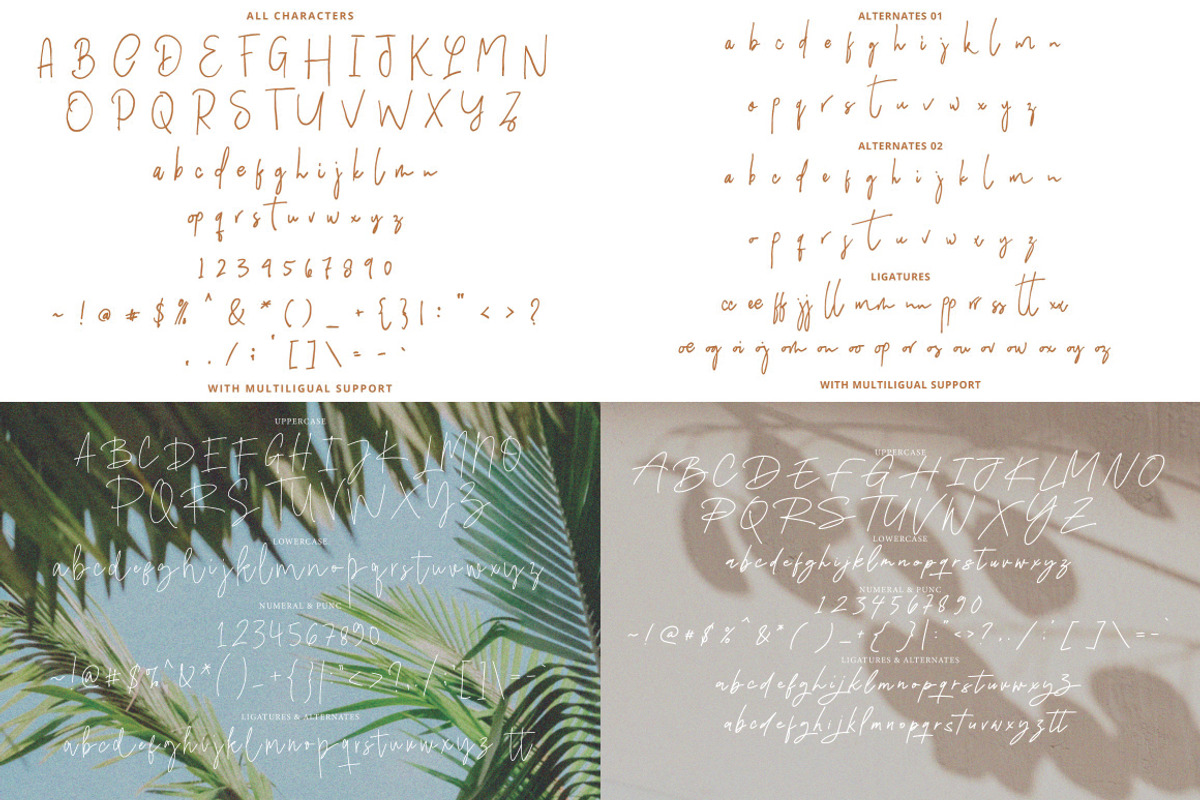 ALL CHARACTERS
A B C D E F G H I J K L M N
O P Q R S T U V W X Y Z
a b c d e f g h i j k l m n
o p q r s t u v w x y z
1 2 3 4 5 6 7 8 9 0
~ ! @ # $ % ^ & * ( ) _ + { } | : " < > ?
. , / ; ' [ ] \ = - `
WITH MULTILIGUAL SUPPORT
ALTERNATES 01
a b c d e f g h i j k l m n
o p q r s t u v w x y z
ALTERNATES 02
a b c d e f g h i j k l m n
o p q r s t u v w x y z
LIGATURES
cc ee ff jj ll mm nn pp rr ss tt xx
oe og oi oj om on oo op or os ou ov ow ox oy oz
WITH MULTILIGUAL SUPPORT
UPPERCASE
A B C D E F G H I J K L M N O
P Q R S T U V W X Y Z
LOWERCASE
a b c d e f g h i j k l m n o p q r s t u v w x y z
NUMERAL & PUNC
1 2 3 4 5 6 7 8 9 0
~ ! @ # $ % ^ & * ( ) _ + { } | : " < > ? , . / ; ' [ ] \ = - `
LIGATURES & ALTERNATES
a b c d e f g h i j k l m n o p q r s t u v w x y z tt
UPPERCASE
A B C D E F G H I J K L M N O
P Q R S T U V W X Y Z
LOWERCASE
a b c d e f g h i j k l m n o p q r s t u v w x y z
NUMERAL & PUNC
1 2 3 4 5 6 7 8 9 0
~ ! @ # $ % ^ & * ( ) _ + { } | : " < > ? , . / ; ' [ ] \ = - `
LIGATURES & ALTERNATES
a b c d e f g h i j k l m n o p q r s t u v w x y z
a b c d e f g h i j k l m n o p q r s t u v w x y z tt